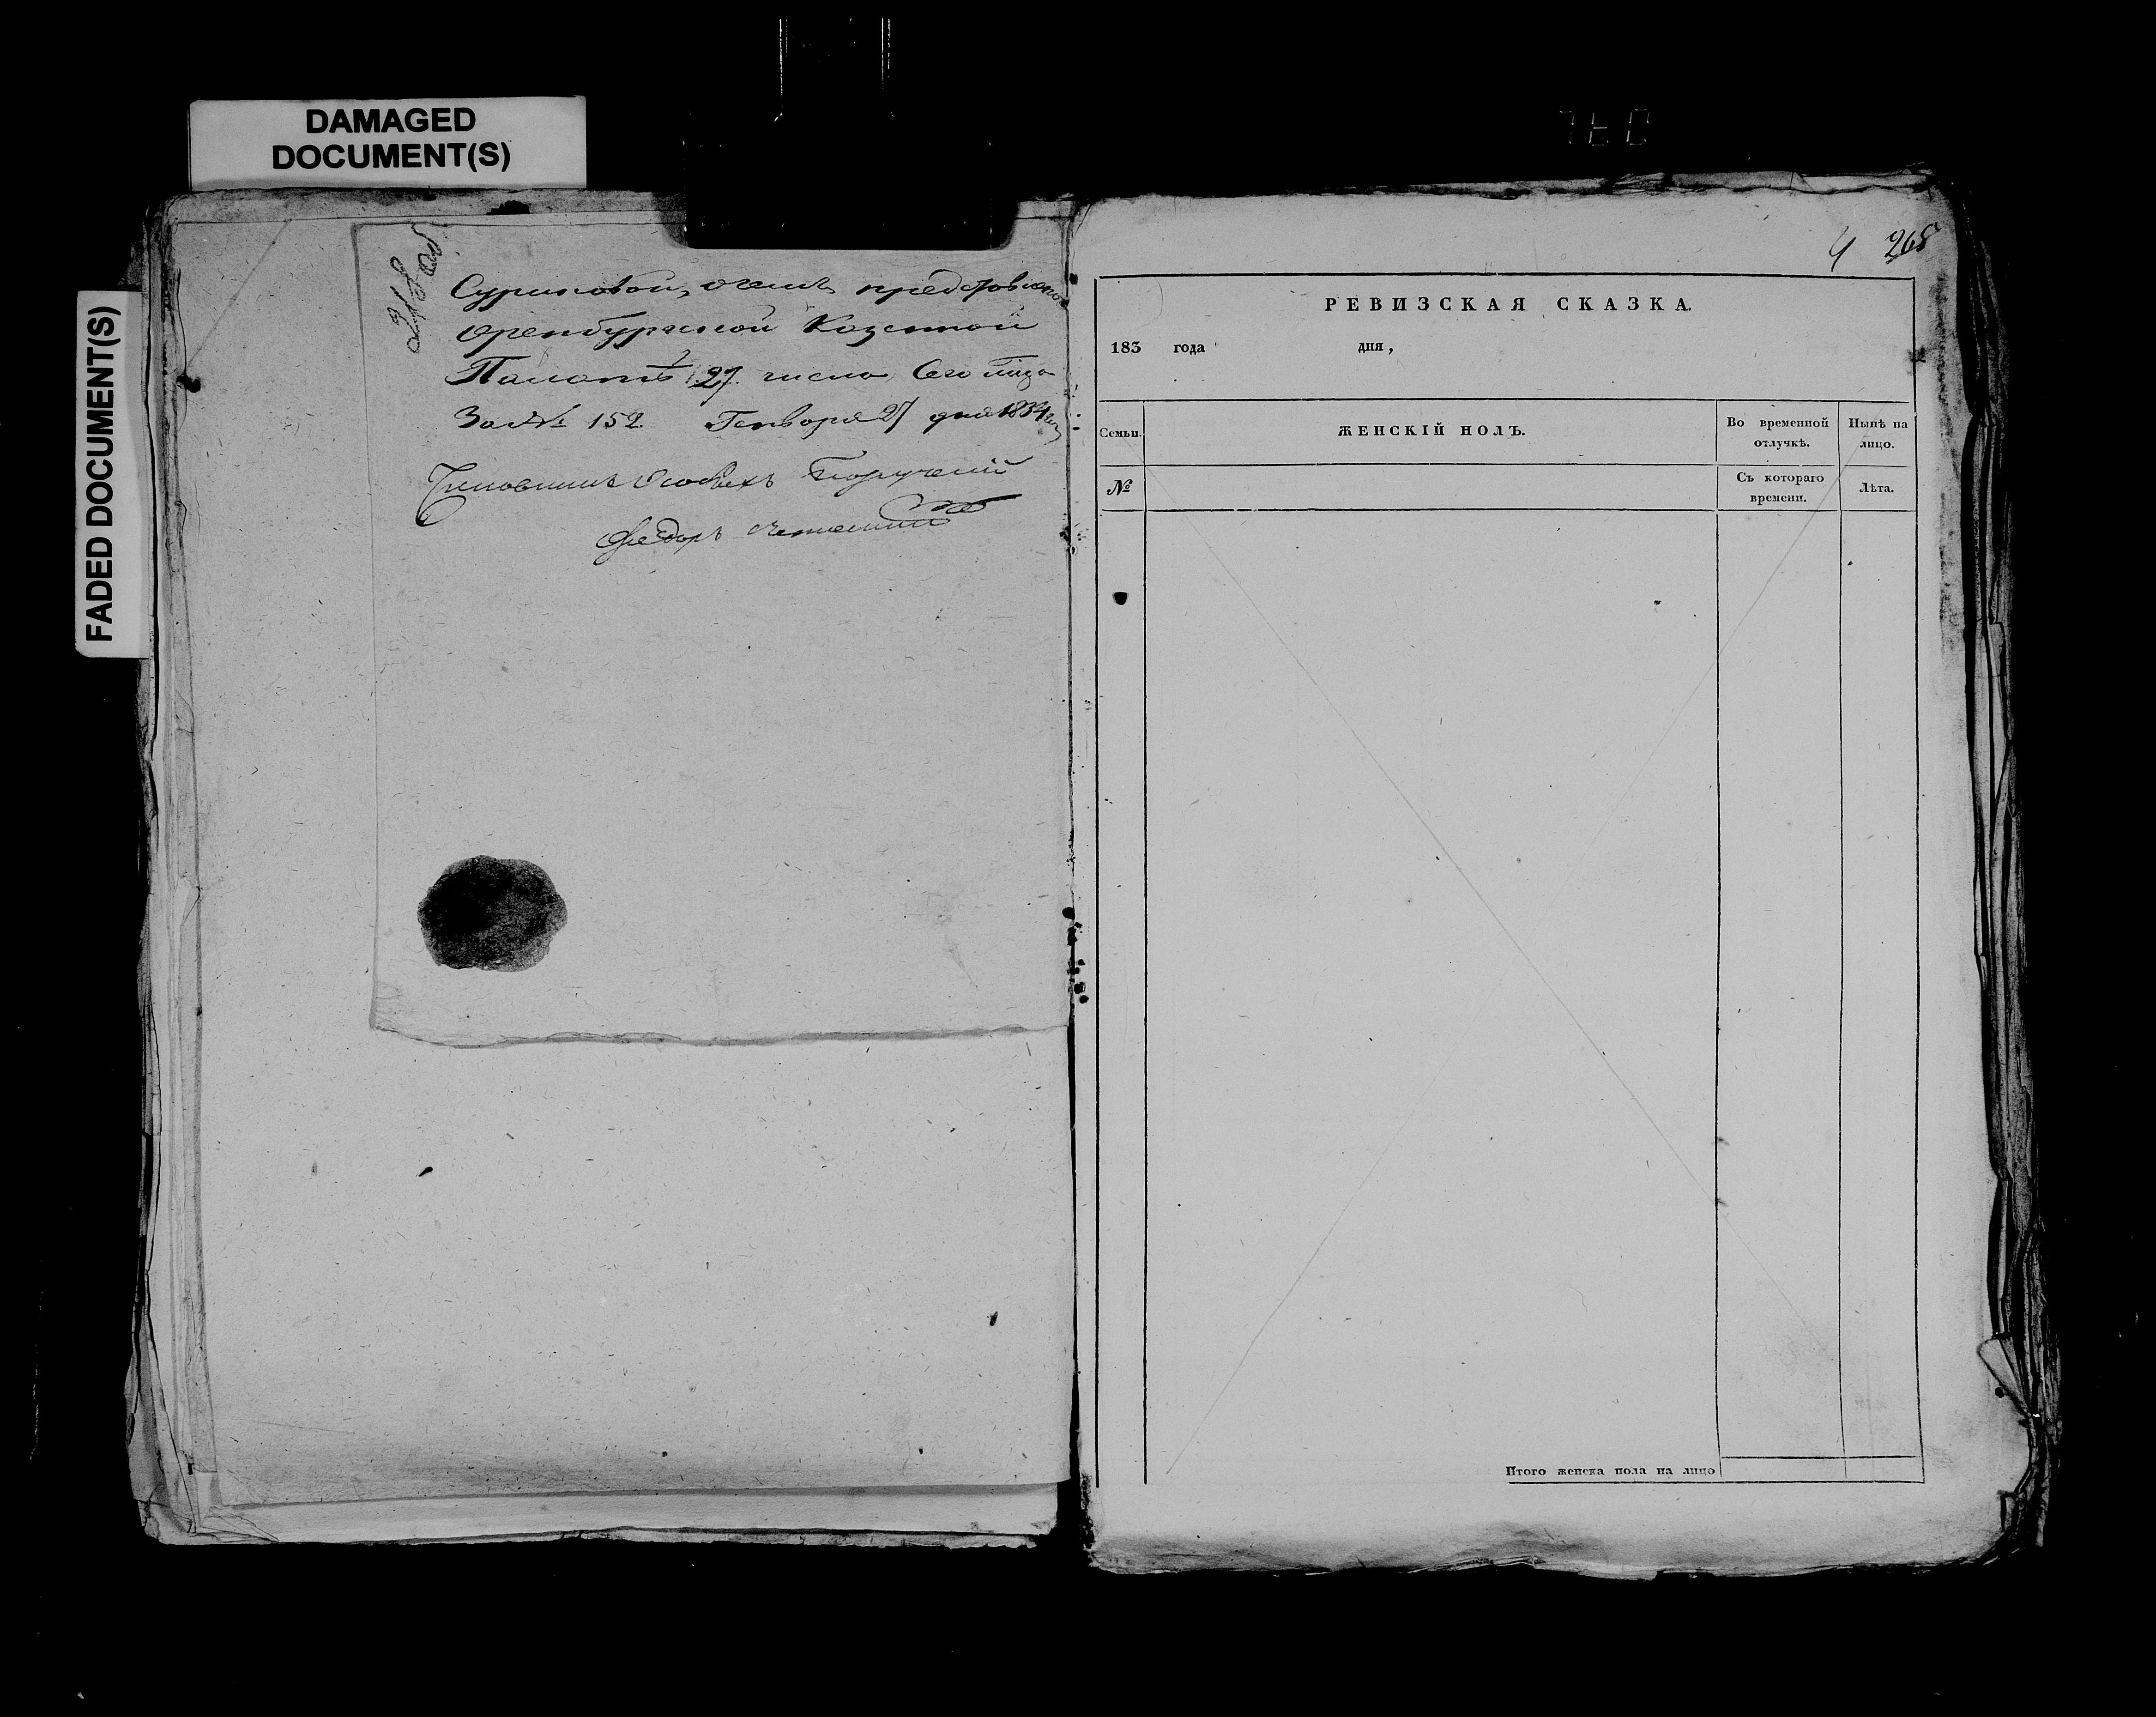 DAMAGED
DOCUMENT(S)
FADED DOCUMENT(S)
Суриковой, о чемъ представлено
Оренбургской Казенной
Палатѣ 27. числа сего
За № 152. Генваря 27 дня 1834
Чиновникъ Особыхъ Порученій
Федоръ
4 268
РЕВИЗСКАЯ СКАЗКА.
183 года дня,
Семьи. ЖЕНСКІЙ ПОЛЪ. Во временной отлучкѣ. Нынѣ на лицо.
№ Съ котораго времени. Лѣта.
Итого женска пола на лицо